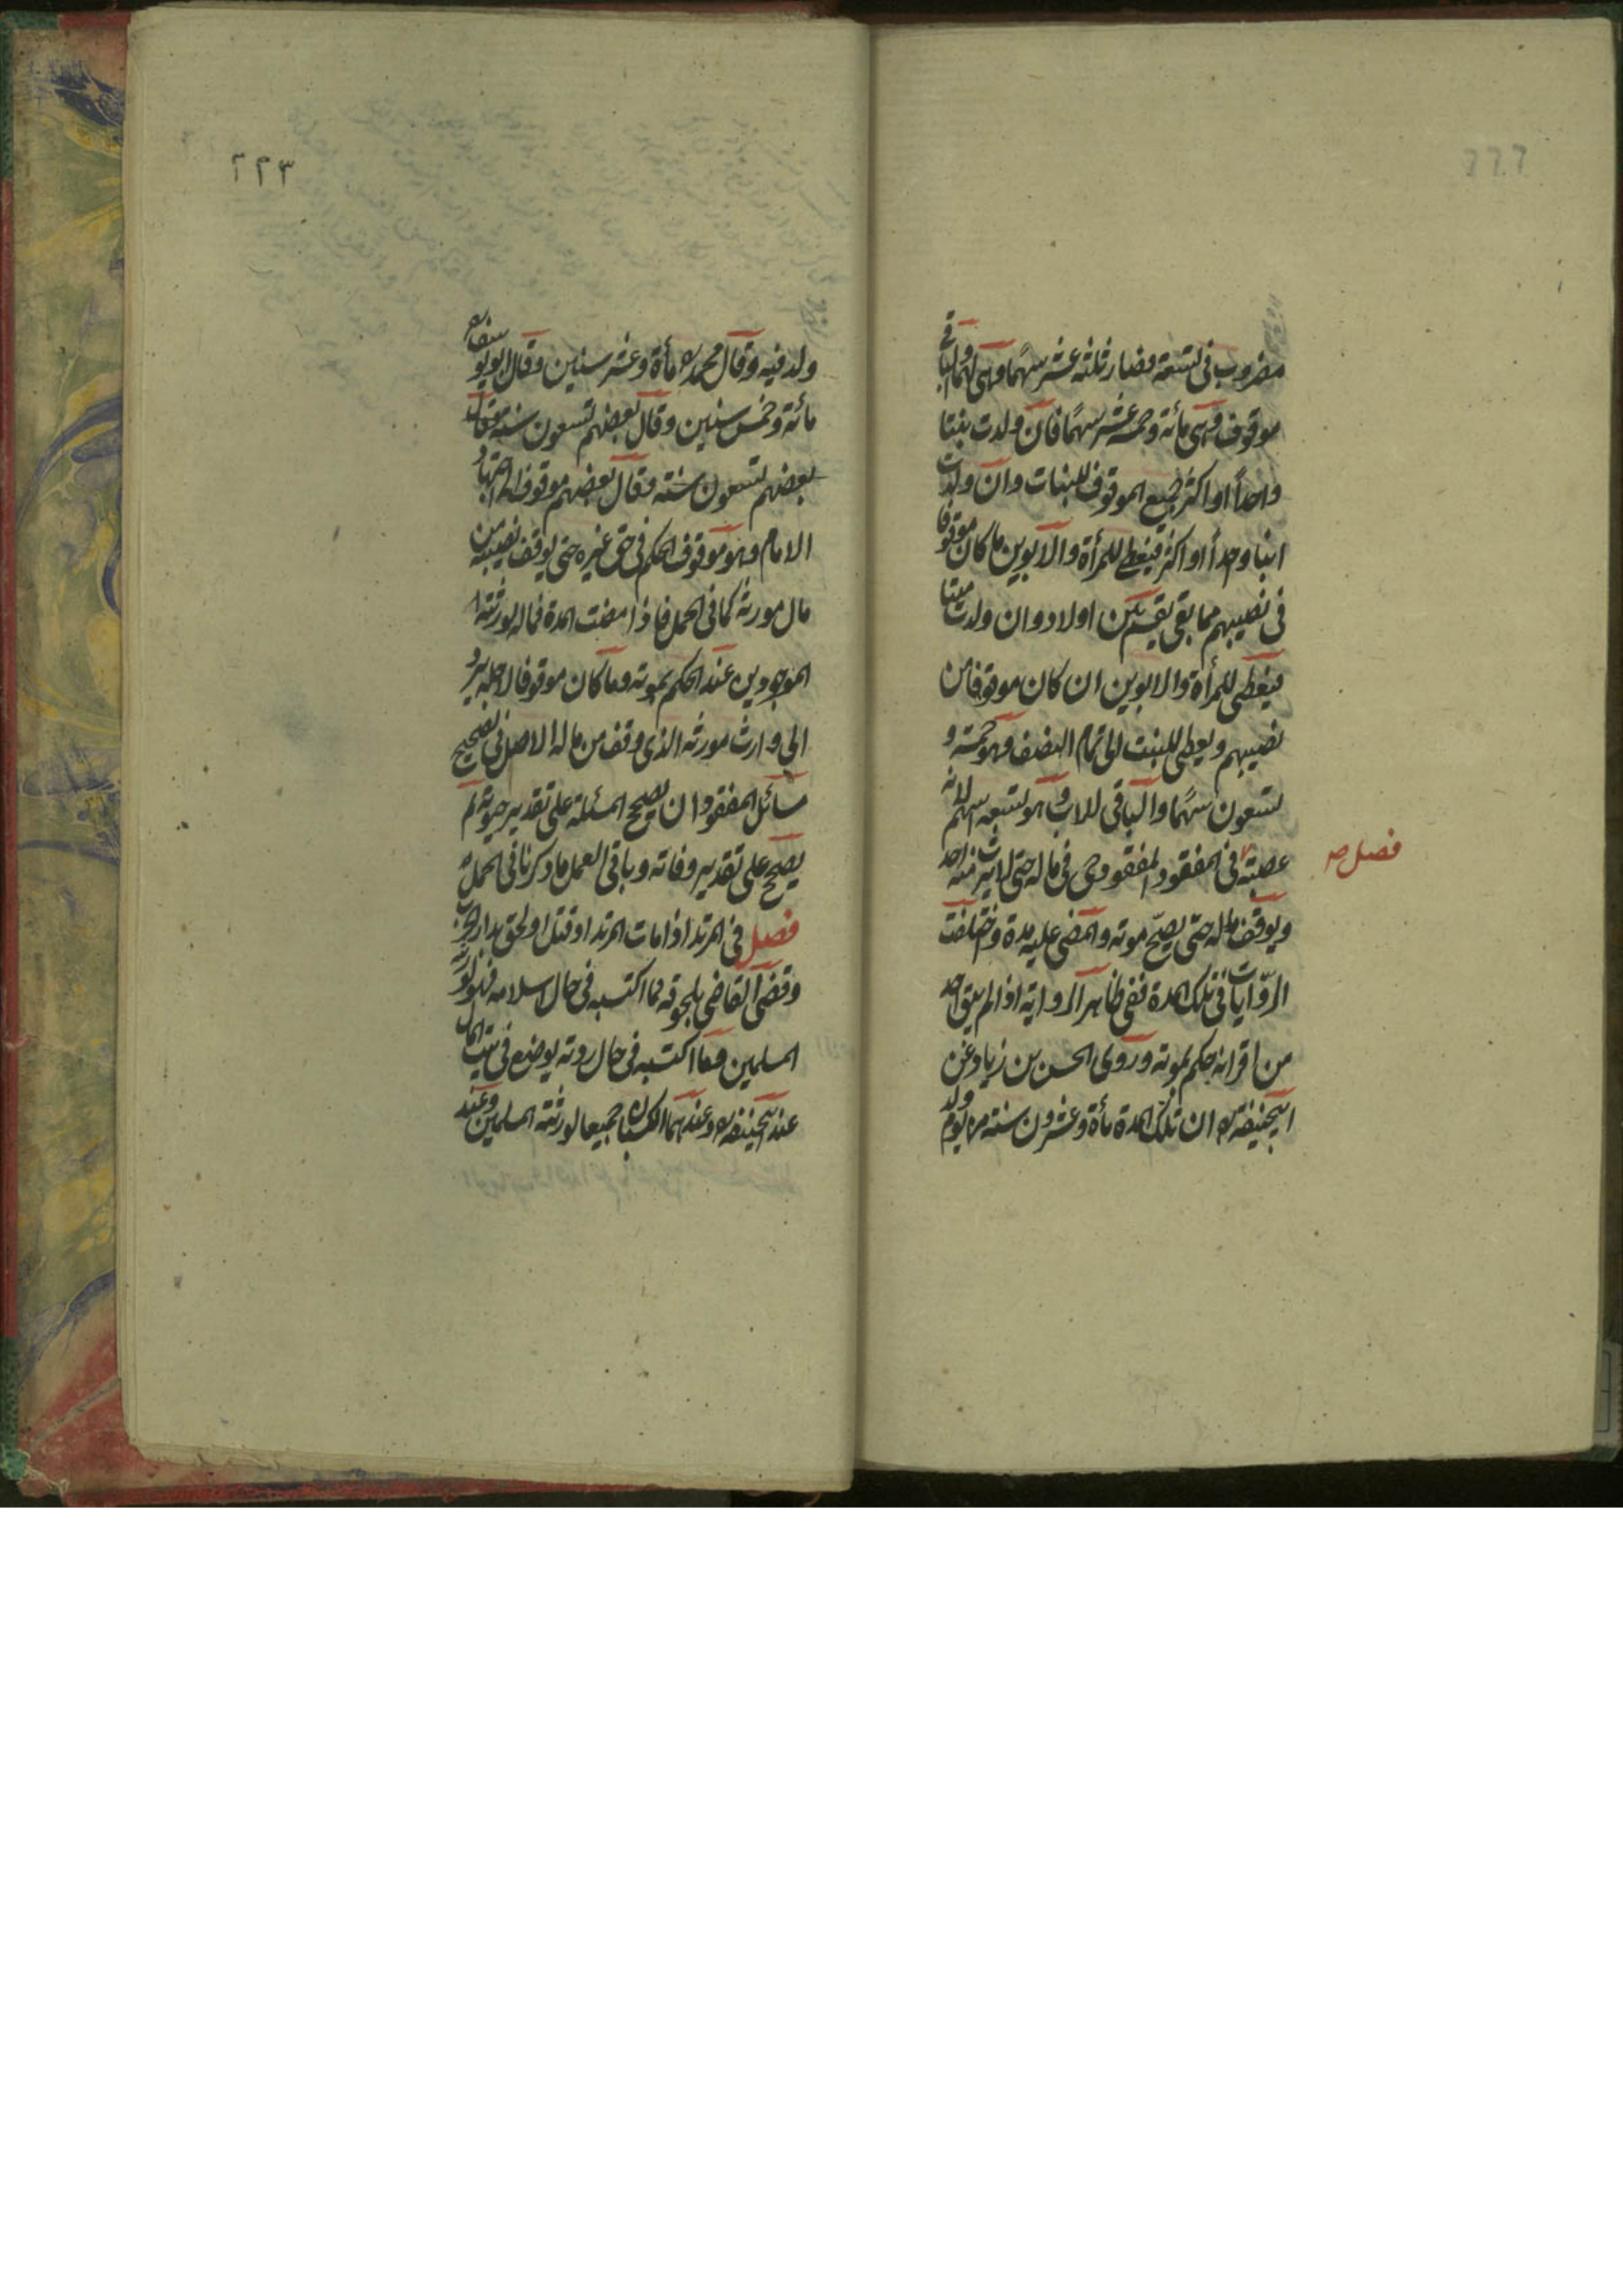 ٢٢٢
مضروب فى تسعة فصار ثلثة عشر سهما وهى لهما والباقى
موقوف وهى مائة وخمسة عشر سهمًا فان ولدت بنتا
واحداً او اكثر فجميع الموقوف للبنات وان ولدت
ابنا وحداً او اكثر فيعطى للمرأة والابوين ما كان موقوفا
فى نصيبهم مما بقى يقسم بين اولاد وان ولدت ميتا
فيعطى للمرأة والابوين ان كان موقوفا من
نصيبهم ويعطى للبنت الى تمام النصف وهو خمسة و
تسعون سهمًا والباقى للاب وهو تسعة اسهم لانه
عصبته فى المفقود المفقود حى فى ماله حتى لا يرث منه احد
فصل صه
ويوقف ماله حتى يصحّ موته والمضى عليه مدة واختلفت
الروّايات فى تلك المدة ففى ظاهر الرواية اذا لم يبق احد
من اقرانه حكم بموته وروى الحسن بن زياد عن
ابيحنيفة ره ان تلك المدة مأة وعشرون سنة من يوم ولد
٢٢٣
ولد فيه وقال محمد ره مأة وعشر سنين وقال ابو يوسف ره
مائة وخمس سنين وقال بعضهم تسعون سنة وقال
بعضهم تسعون سنته وقال بعضهم موقوف الى اجتهاد
الامام وهو موقوف الحكم فى حق غيره حتى يوقف نصيبه من
مال مورثه كما فى الحمل فاذا مضت المدة فماله لورثته
الموجودين عند الحكم بموته وما كان موقوفا لاجله يرد
الى وارث مورثه الذى وقف من ماله الاصل فى تصحيح
مسائل المفقود ان يصحح المسئلة على تقدير حيوته ثم
يصحح على تقدير وفاته وباقى العمل ما ذكرنا فى الحمل
فصل فى المرتد اذا مات المرتد او قتل او لحق بدار الحرب
وقضى القاضى بلحوقه فما اكتسبه فى حال اسلامه فهو لورثته
المسلمين وما اكتسبه فى حال ردته يوضع فى بيت المال
عند ابيحنيفه ره وعندهما الكسبان جميعا لورثته المسلمين وعند